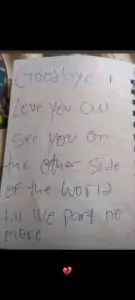 Goodbye, I
Love you all
See you on
the other side
of the world
till we part no
more